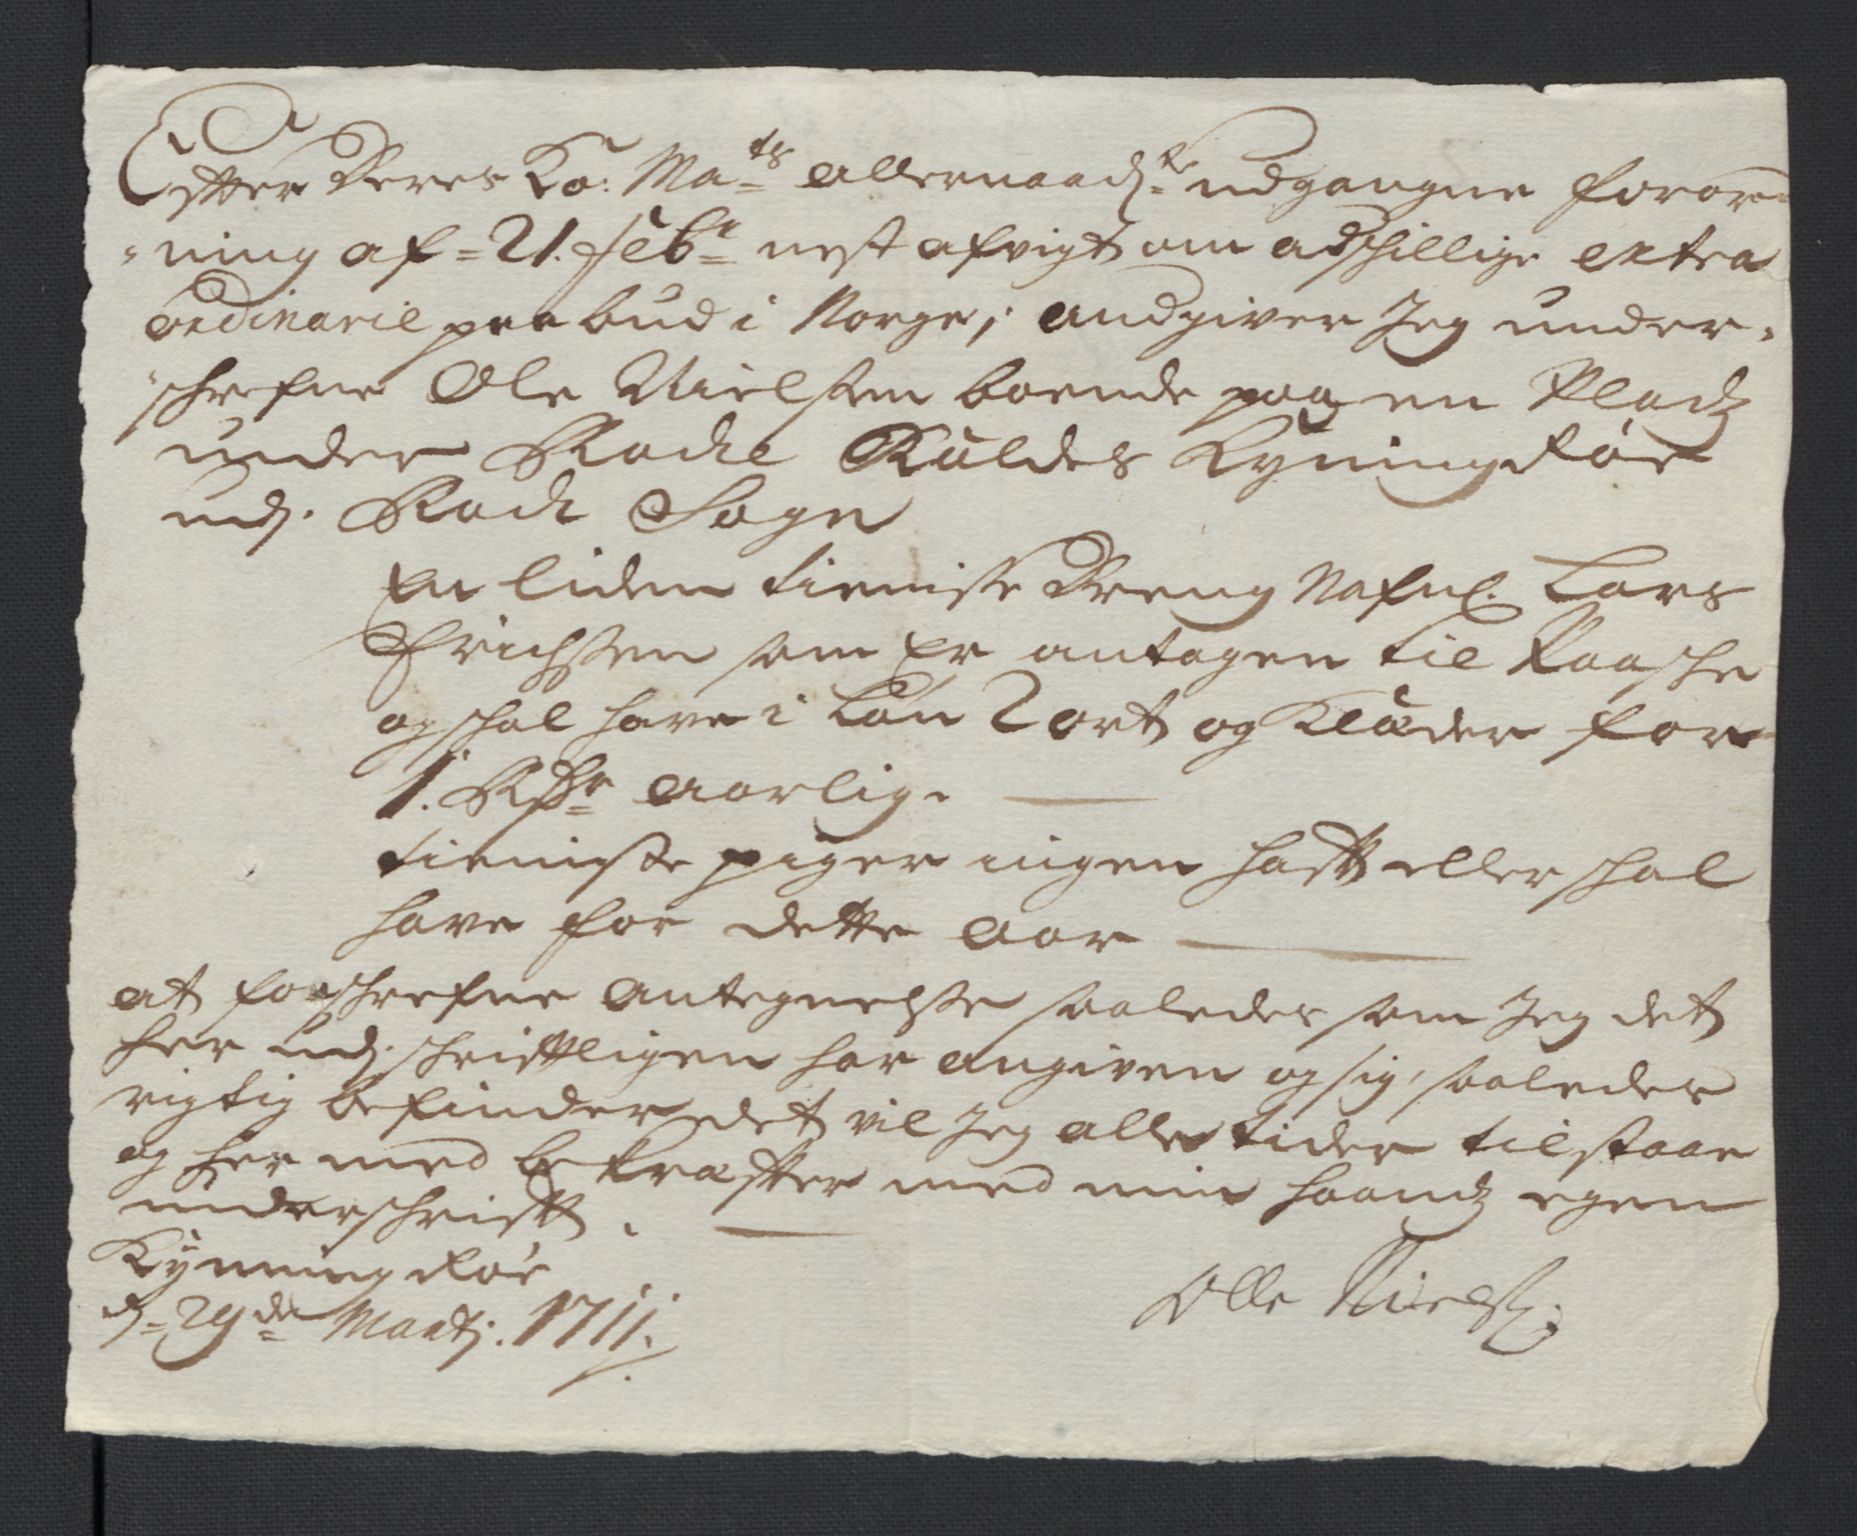 Effter Deres Ko: Ma:ts allernaadste udgangne foror=
=ning af = 21. Feb:r nest afvigt om adschillige extra
ordinarie paabud i Norge; andgiver Jeg under=
=schrefne Ole Nielssen boende paa en Pladz
under Rode Kyningdsør
udj. Rode Sogn
En liden tieniste Dreng Nafnl. Lars
Erichssen som er antagen til Paasche
og schal have i Løn 2 ort og Klæder for
1. Rdr aarlig.
tieniste piger ingen hafft eller schal
have for dette aar
at forschrefne antegnelsse saaledes som Jeg det
her udj. schrifftligen har angiven og sig saaledes
rigtig befinder det vil Jeg alle tider tilstaae
og her med bekræffter med min haandz egen
underschrifft.
Kynningdsør
d = 29de Martj. 1711.
Olle Nielss: